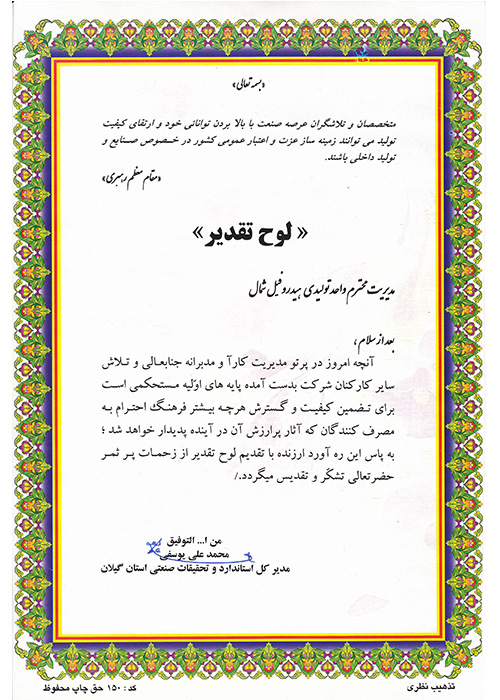 «بسمه تعالی»
متخصصان و تلاشگران عرصه صنعت با بالا بردن توانائی خود و ارتقای کیفیت
تولید می توانند زمینه ساز عزت و اعتبار عمومی کشور در خصوص صنایع و
تولید داخلی باشند.
«مقام معظم رهبری»
« لوح تقدیر »
مدیریت محترم واحد تولیدی هیدروفیل شمال
بعد از سلام ،
آنچه امروز در پرتو مدیریت کارآ و مدبرانه جنابعالی و تلاش
سایر کارکنان شرکت بدست آمده پایه های اوّلیه مستحکمی است
برای تضمین کیفیت و گسترش هرچه بیشتر فرهنگ احترام به
مصرف کنندگان که آثار پرارزش آن در آینده پدیدار خواهد شد ؛
به پاس این ره آورد ارزنده با تقدیم لوح تقدیر از زحمات پر ثمر
حضرتعالی تشکّر و تقدیس میگردد./
من ا... التوفیق
محمد علی یوسفی
مدیر کل استاندارد و تحقیقات صنعتی استان گیلان
تذهیب نظری
کد : ۱۵۰ حق چاپ محفوظ